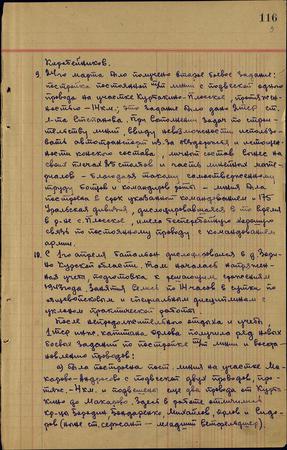 116
Коробейников.
9. 24го марта было получено второе боевое задание:
постройка постоянной линии с подвеской одного
провода на участке Куркино-Плоское, протяжен-
ностью - 14км; это задание было дано 2й
л-та Степанова. При выполнении задач по стро-
ительству линии, ввиду невозможности использо-
вать автотранспорт из-за бездорожья и истоще-
ности конского состава, личный состав вынес на
своих плечах 85 столбов и часть линейных мате-
риалов - благодаря такому самоотверженному
труду бойцов и командиров роты - линия была
построена в срок указанный командованием и 175
Уральская дивизия, дислоцировавшаяся в то время
в р-не с. Плоское, имела бесперебойную хорошую
связь по постоянному проводу с командованием
армии.
10. С 1го апреля батальон дислоцировался в д.
Курской области. Там началась напряжен-
ная учеба подготовка к решающим сражениям
1943 года. Занятия велись по 14 часов в сутки по
и специальным дисциплинам с
уклоном практической работы.
После непродолжительного отдыха и учебы
капитана Орлова получила ряд новых
боевых заданий по постройке линии и восста-
новлению проводов:
а) Была построена пост. линия на участке Мака-
рово- с подвеской двух проводов, про-
тяж. - 4км. и подвешено еще два провода от Курк-
кино до Макарово. Здесь в работе отличились
кр-цы Бородин Бондаренко, Михайлов, Орлов и Сидо-
ров (ныне ст. сержант - младший).